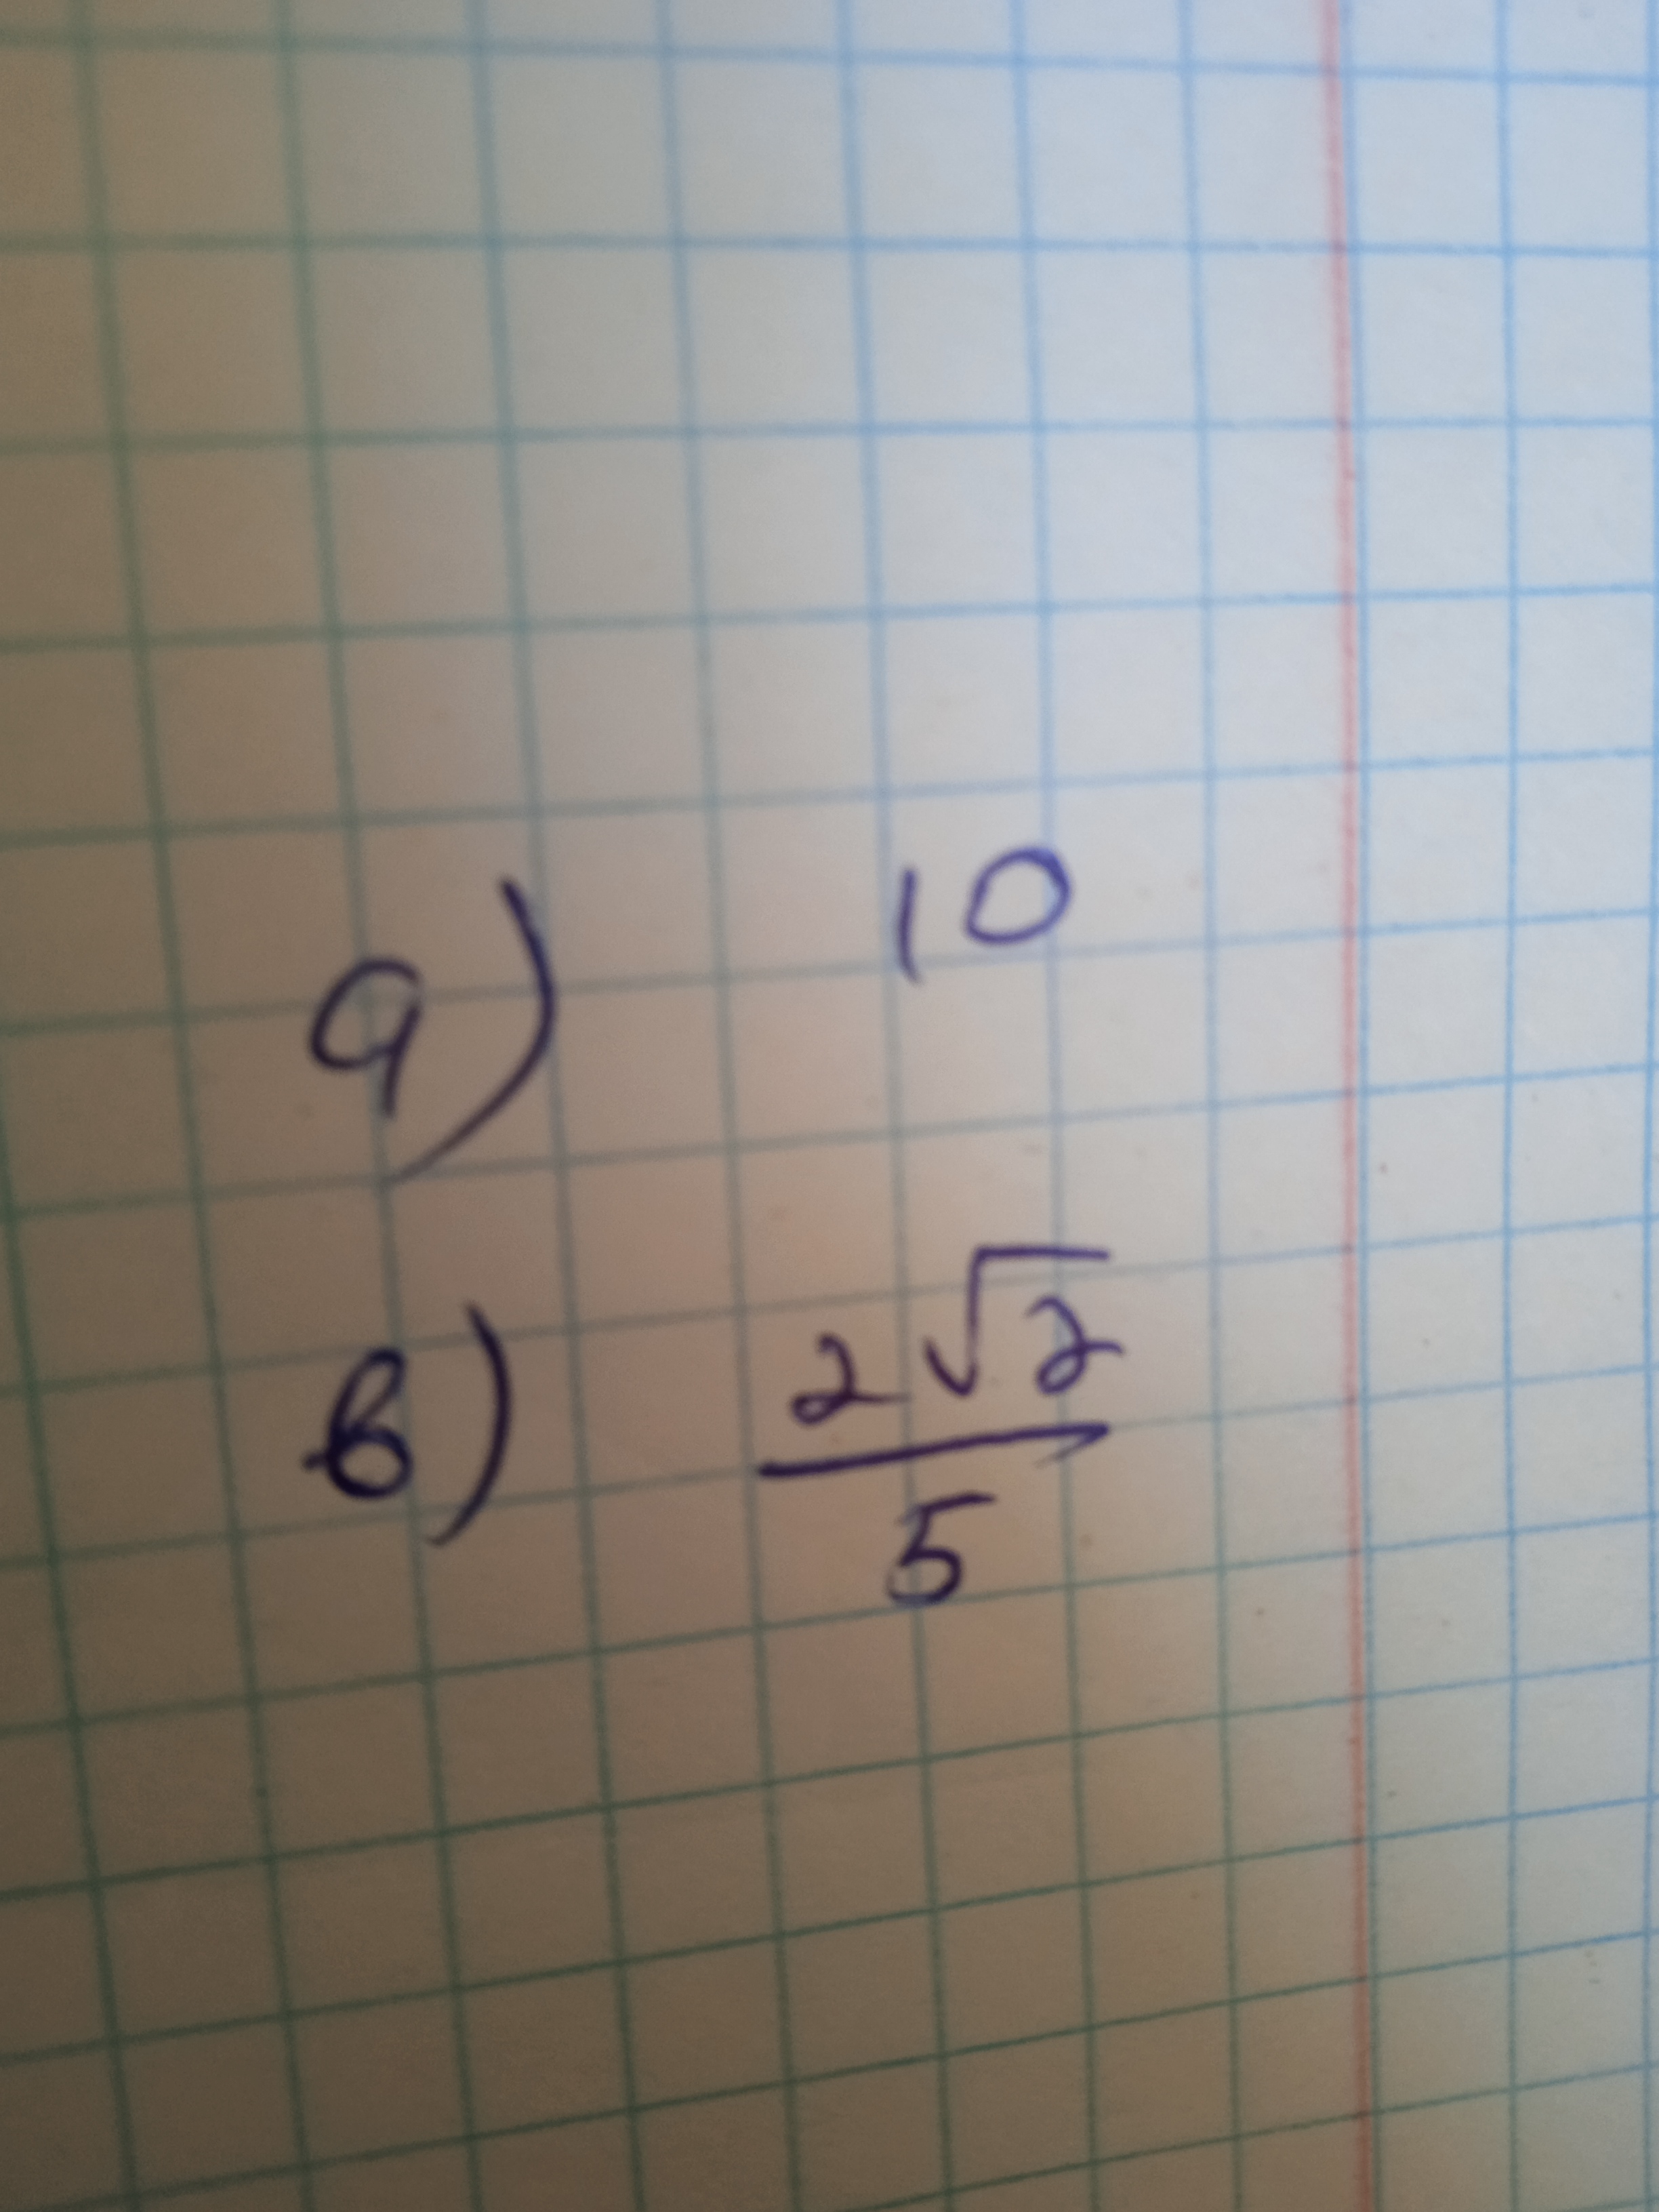 а) 10
в) 2√2/5